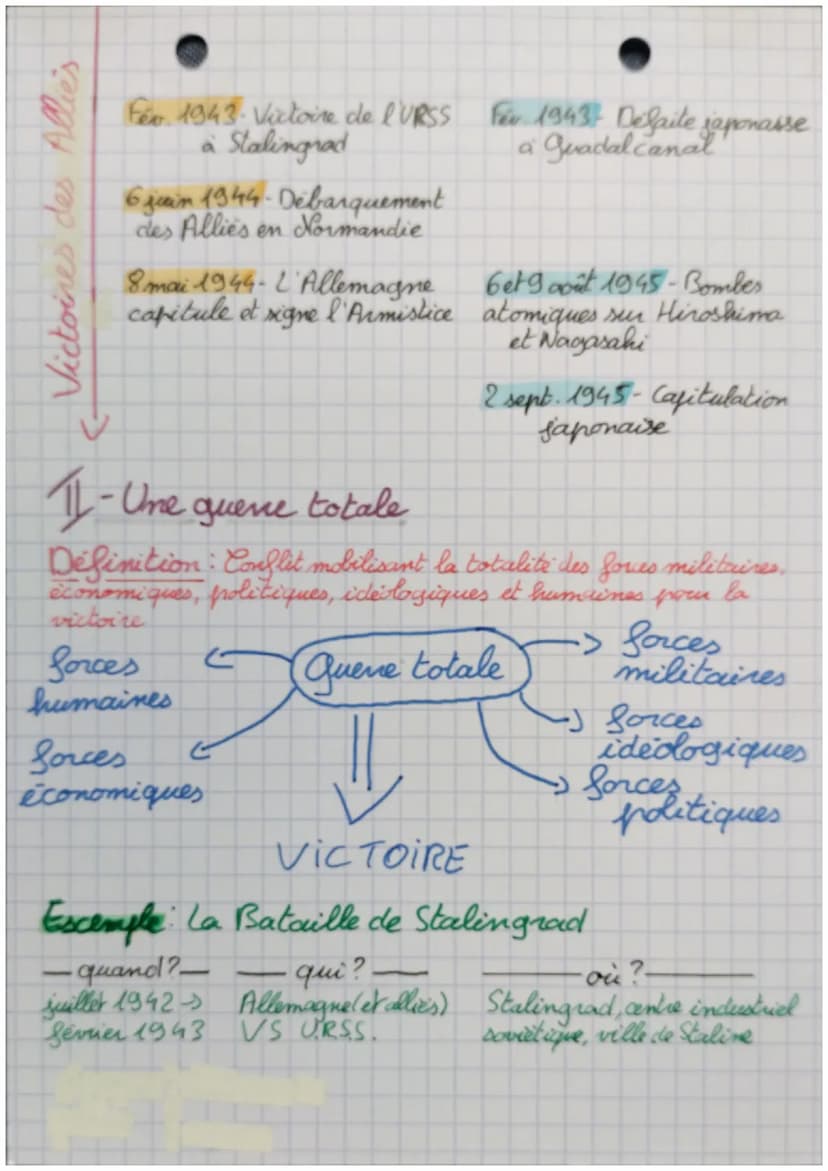 Victoires des Alliés
Fév. 1943 - Victoire de l'URSS
à Stalingrad
6 juin 1944 - Débarquement
des Alliés en Normandie
8 mai 1944 - L'Allemagne
capitule et signe l'Armistice
Fév. 1943 - Défaite japonaise
à Guadalcanal
6 et 9 août 1945 - Bombes
atomiques sur Hiroshima
et Nagasaki
2 sept. 1945 - Capitulation
japonaise
II - Une guerre totale
Définition : Conflit mobilisant la totalité des forces militaires,
économiques, politiques, idéologiques et humaines pour la
victoire
Guerre totale
forces
humaines
forces
économiques
forces
militaires
forces
idéologiques
forces
politiques
VICTOIRE
Exemple : La Bataille de Stalingrad
quand ?
juillet 1942 ->
février 1943
qui ?
Allemagne (et alliés)
VS U.R.S.S.
où ?
Stalingrad, centre industriel
soviétique, ville de Staline